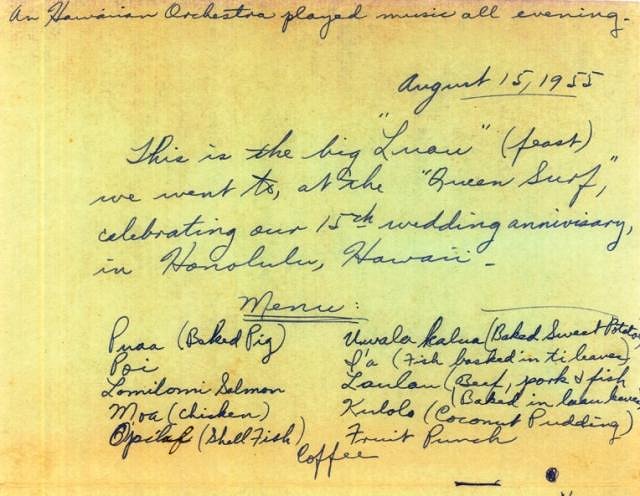 An Hawaiian Orchestra played music all evening.
August 15, 1955
This is the big "Luau" (feast)
we went to, at the "Queen Surf,"
celebrating our 15th wedding annivisary,
in Honolulu, Hawaii -
Menu:
Puaa (Baked Pig)
Poi
Lomilomi Salmon
Moa (chicken)
(Shell Fish)
Uwala kalua (Baked Sweet Potato
I'a (Fish baked in ti leaves)
Laulau (Beef, pork & fish
(Baked in leaves
Kulolo (Coconut Pudding)
Fruit Punch
Coffee